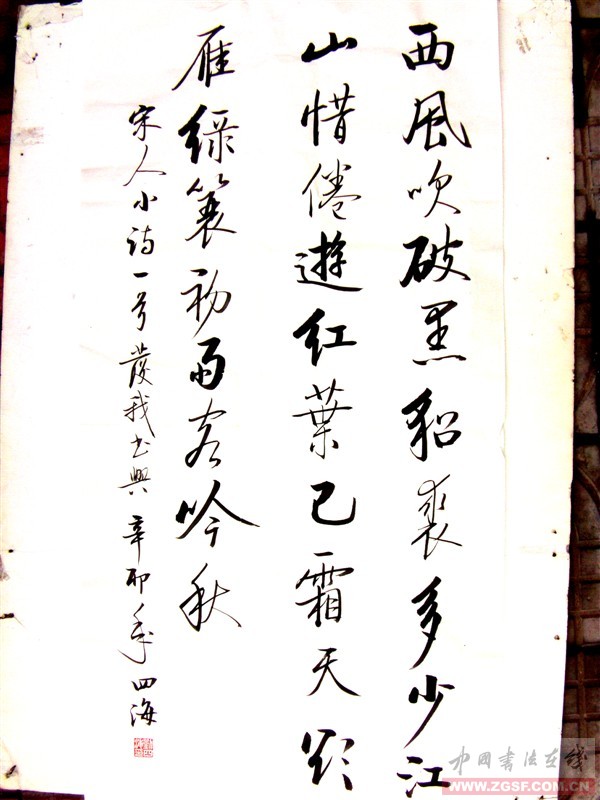 西風吹破黑貂裘多少江
山惜倦遊紅葉已霜天欲
雁綠蓑初雨客吟秋
宋人小诗一首發我书興 辛卯年 四海
中国书法在线
WWW.ZGSF.COM.CN